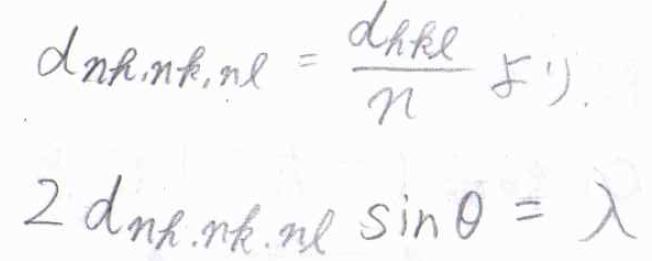 d_{nh,nk,nl} = \frac{d_{hkl}}{n} より.
2 d_{nh.nk.nl} sin θ = λ